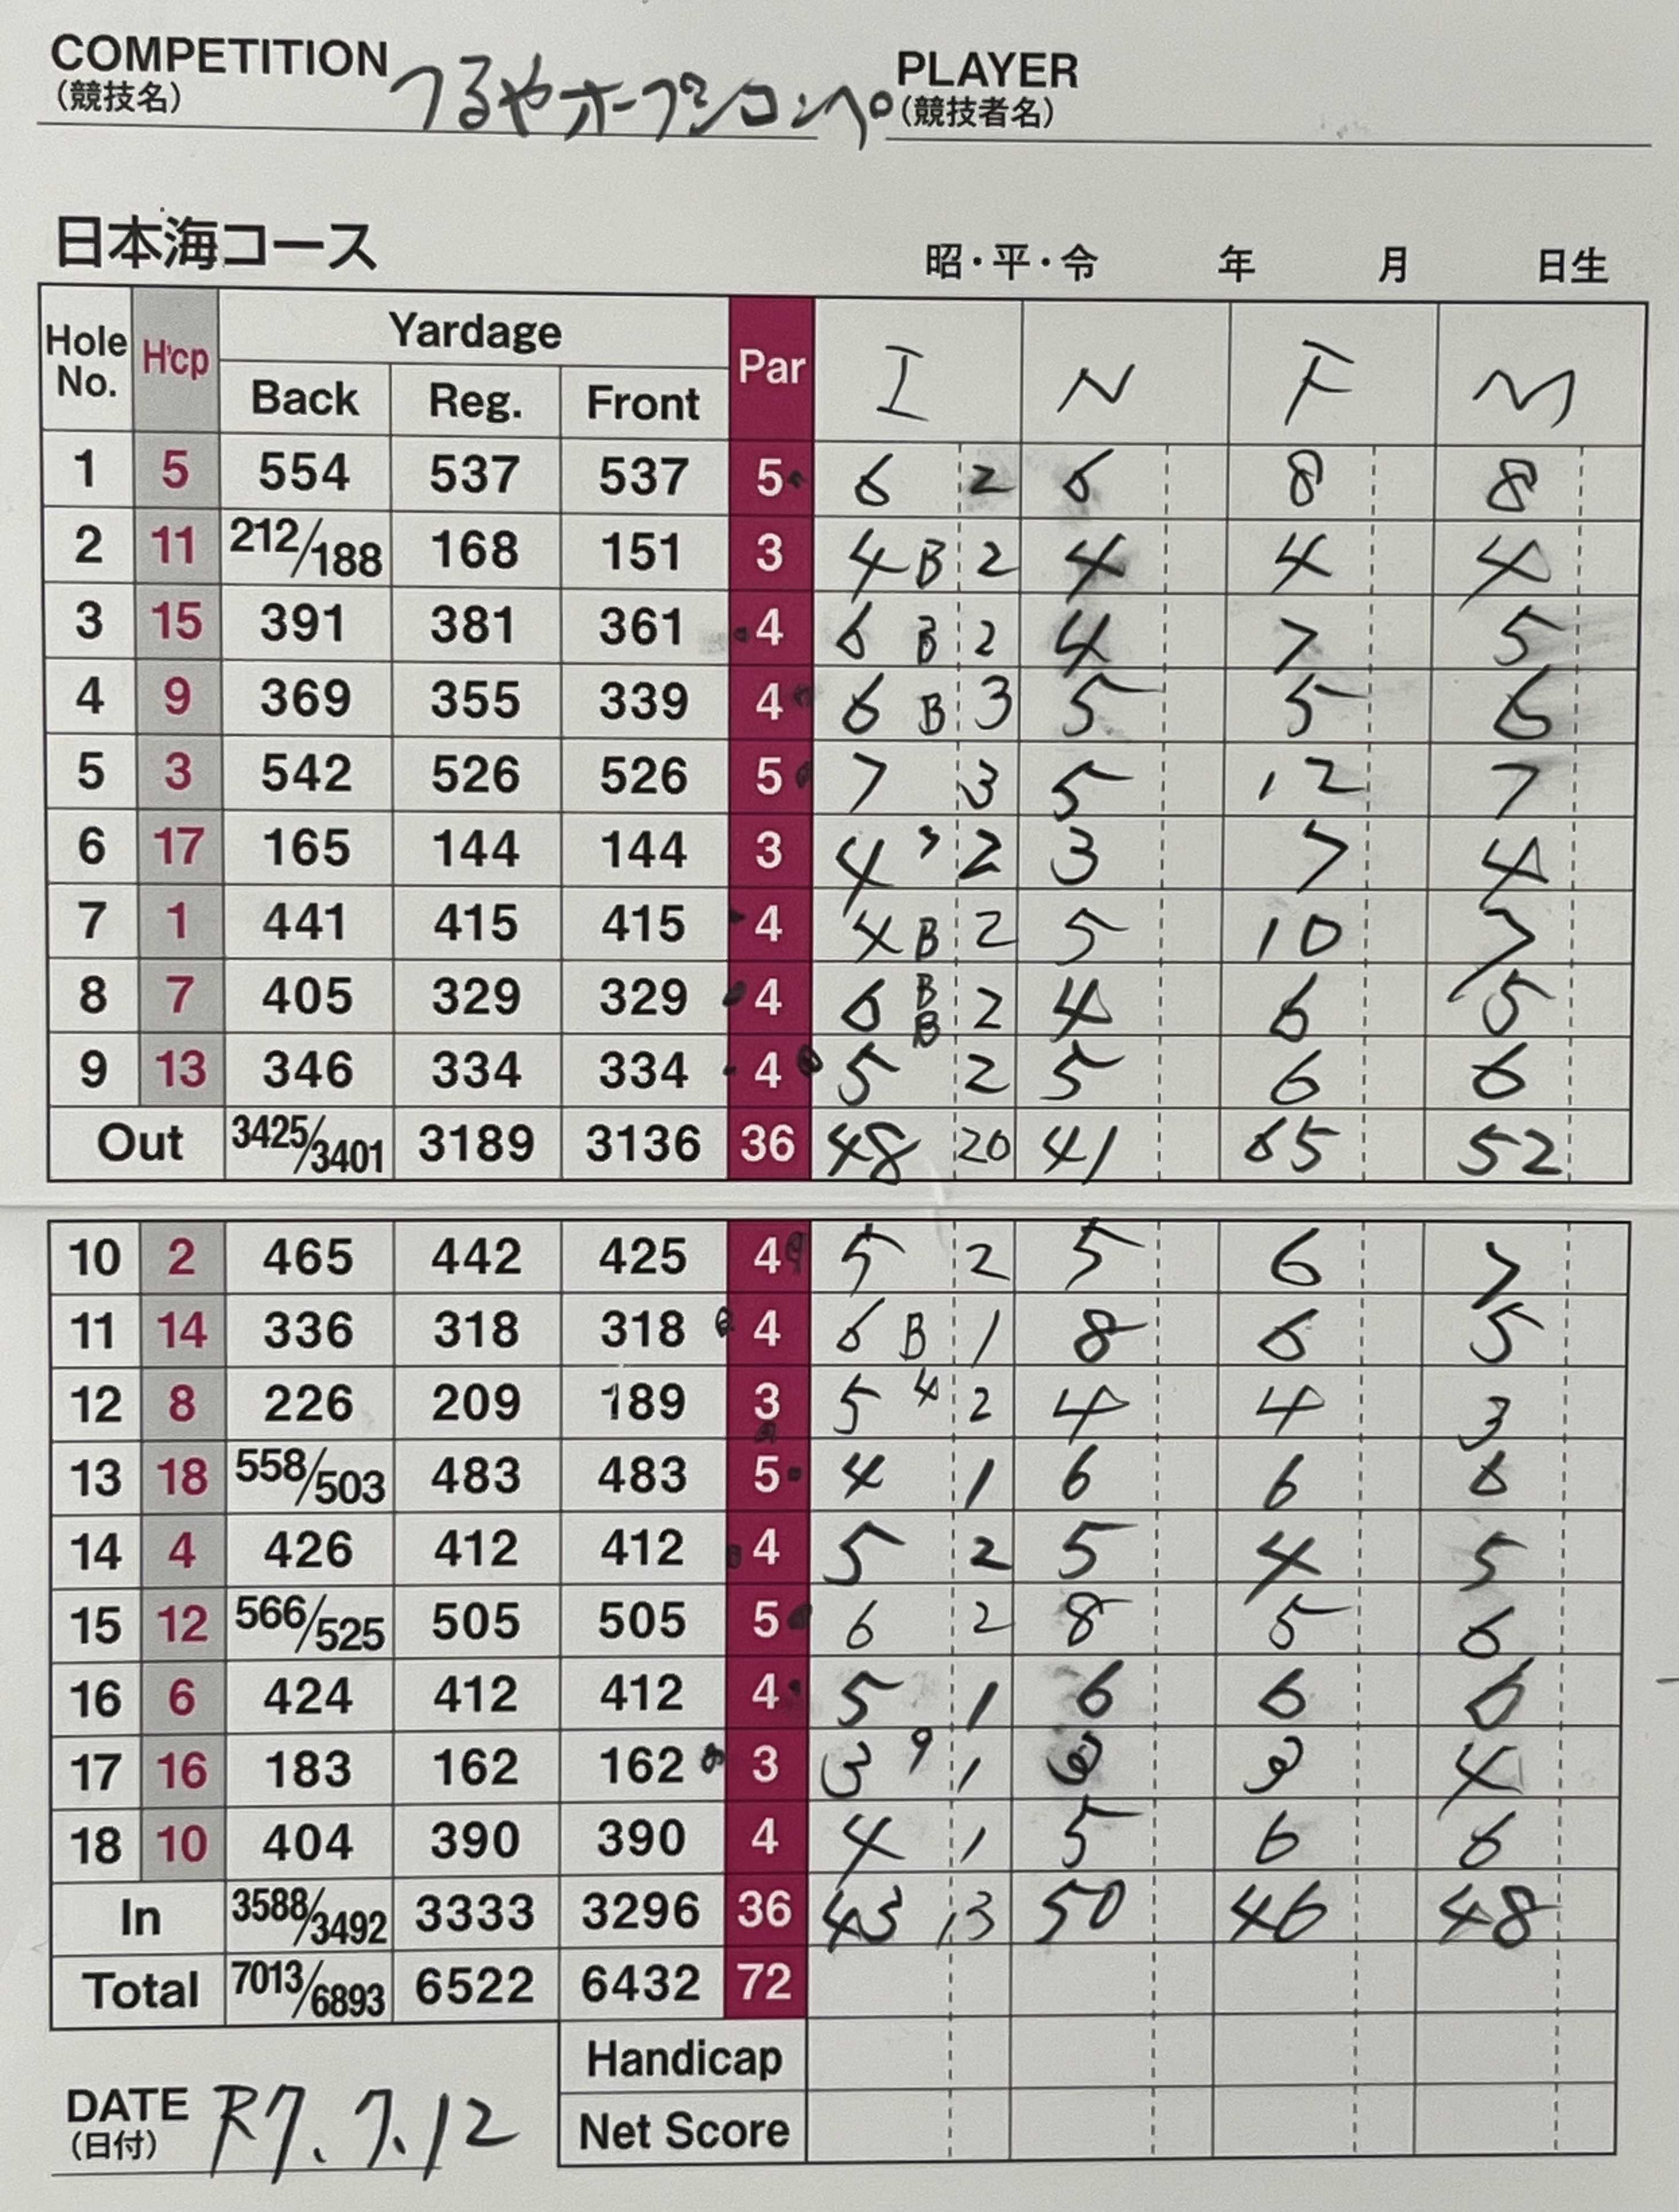 COMPETITION つるやオープンコンペ PLAYER
(競技名) (競技者名)
日本海コース 昭・平・令 年 月 日生
Hole No. H'cp Yardage Par I N F M
Back Reg. Front
1 5 554 537 537 5 6 2 6 8 8
2 11 212/188 168 151 3 4 B 2 4 4 4
3 15 391 381 361 4 6 B 2 4 7 5
4 9 369 355 339 4 6 B 3 5 5 6
5 3 542 526 526 5 7 3 5 12 7
6 17 165 144 144 3 4 2 3 7 4
7 1 441 415 415 4 4 B 2 5 10 7
8 7 405 329 329 4 6 B B 2 4 6 5
9 13 346 334 334 4 5 2 5 6 6
Out 3425/3401 3189 3136 36 48 20 41 65 52
10 2 465 442 425 4 5 2 5 6 7
11 14 336 318 318 4 6 B 1 8 6 5
12 8 226 209 189 3 5 4 2 4 4 3
13 18 558/503 483 483 5 4 1 6 6 6
14 4 426 412 412 4 5 2 5 4 5
15 12 566/525 505 505 5 6 2 8 5 6
16 6 424 412 412 4 5 1 6 6 6
17 16 183 162 162 3 3 9 1 3 3 4
18 10 404 390 390 4 4 1 5 6 6
In 3588/3492 3333 3296 36 43 13 50 46 48
Total 7013/6893 6522 6432 72
Handicap
DATE R7.7.12
(日付)
Net Score